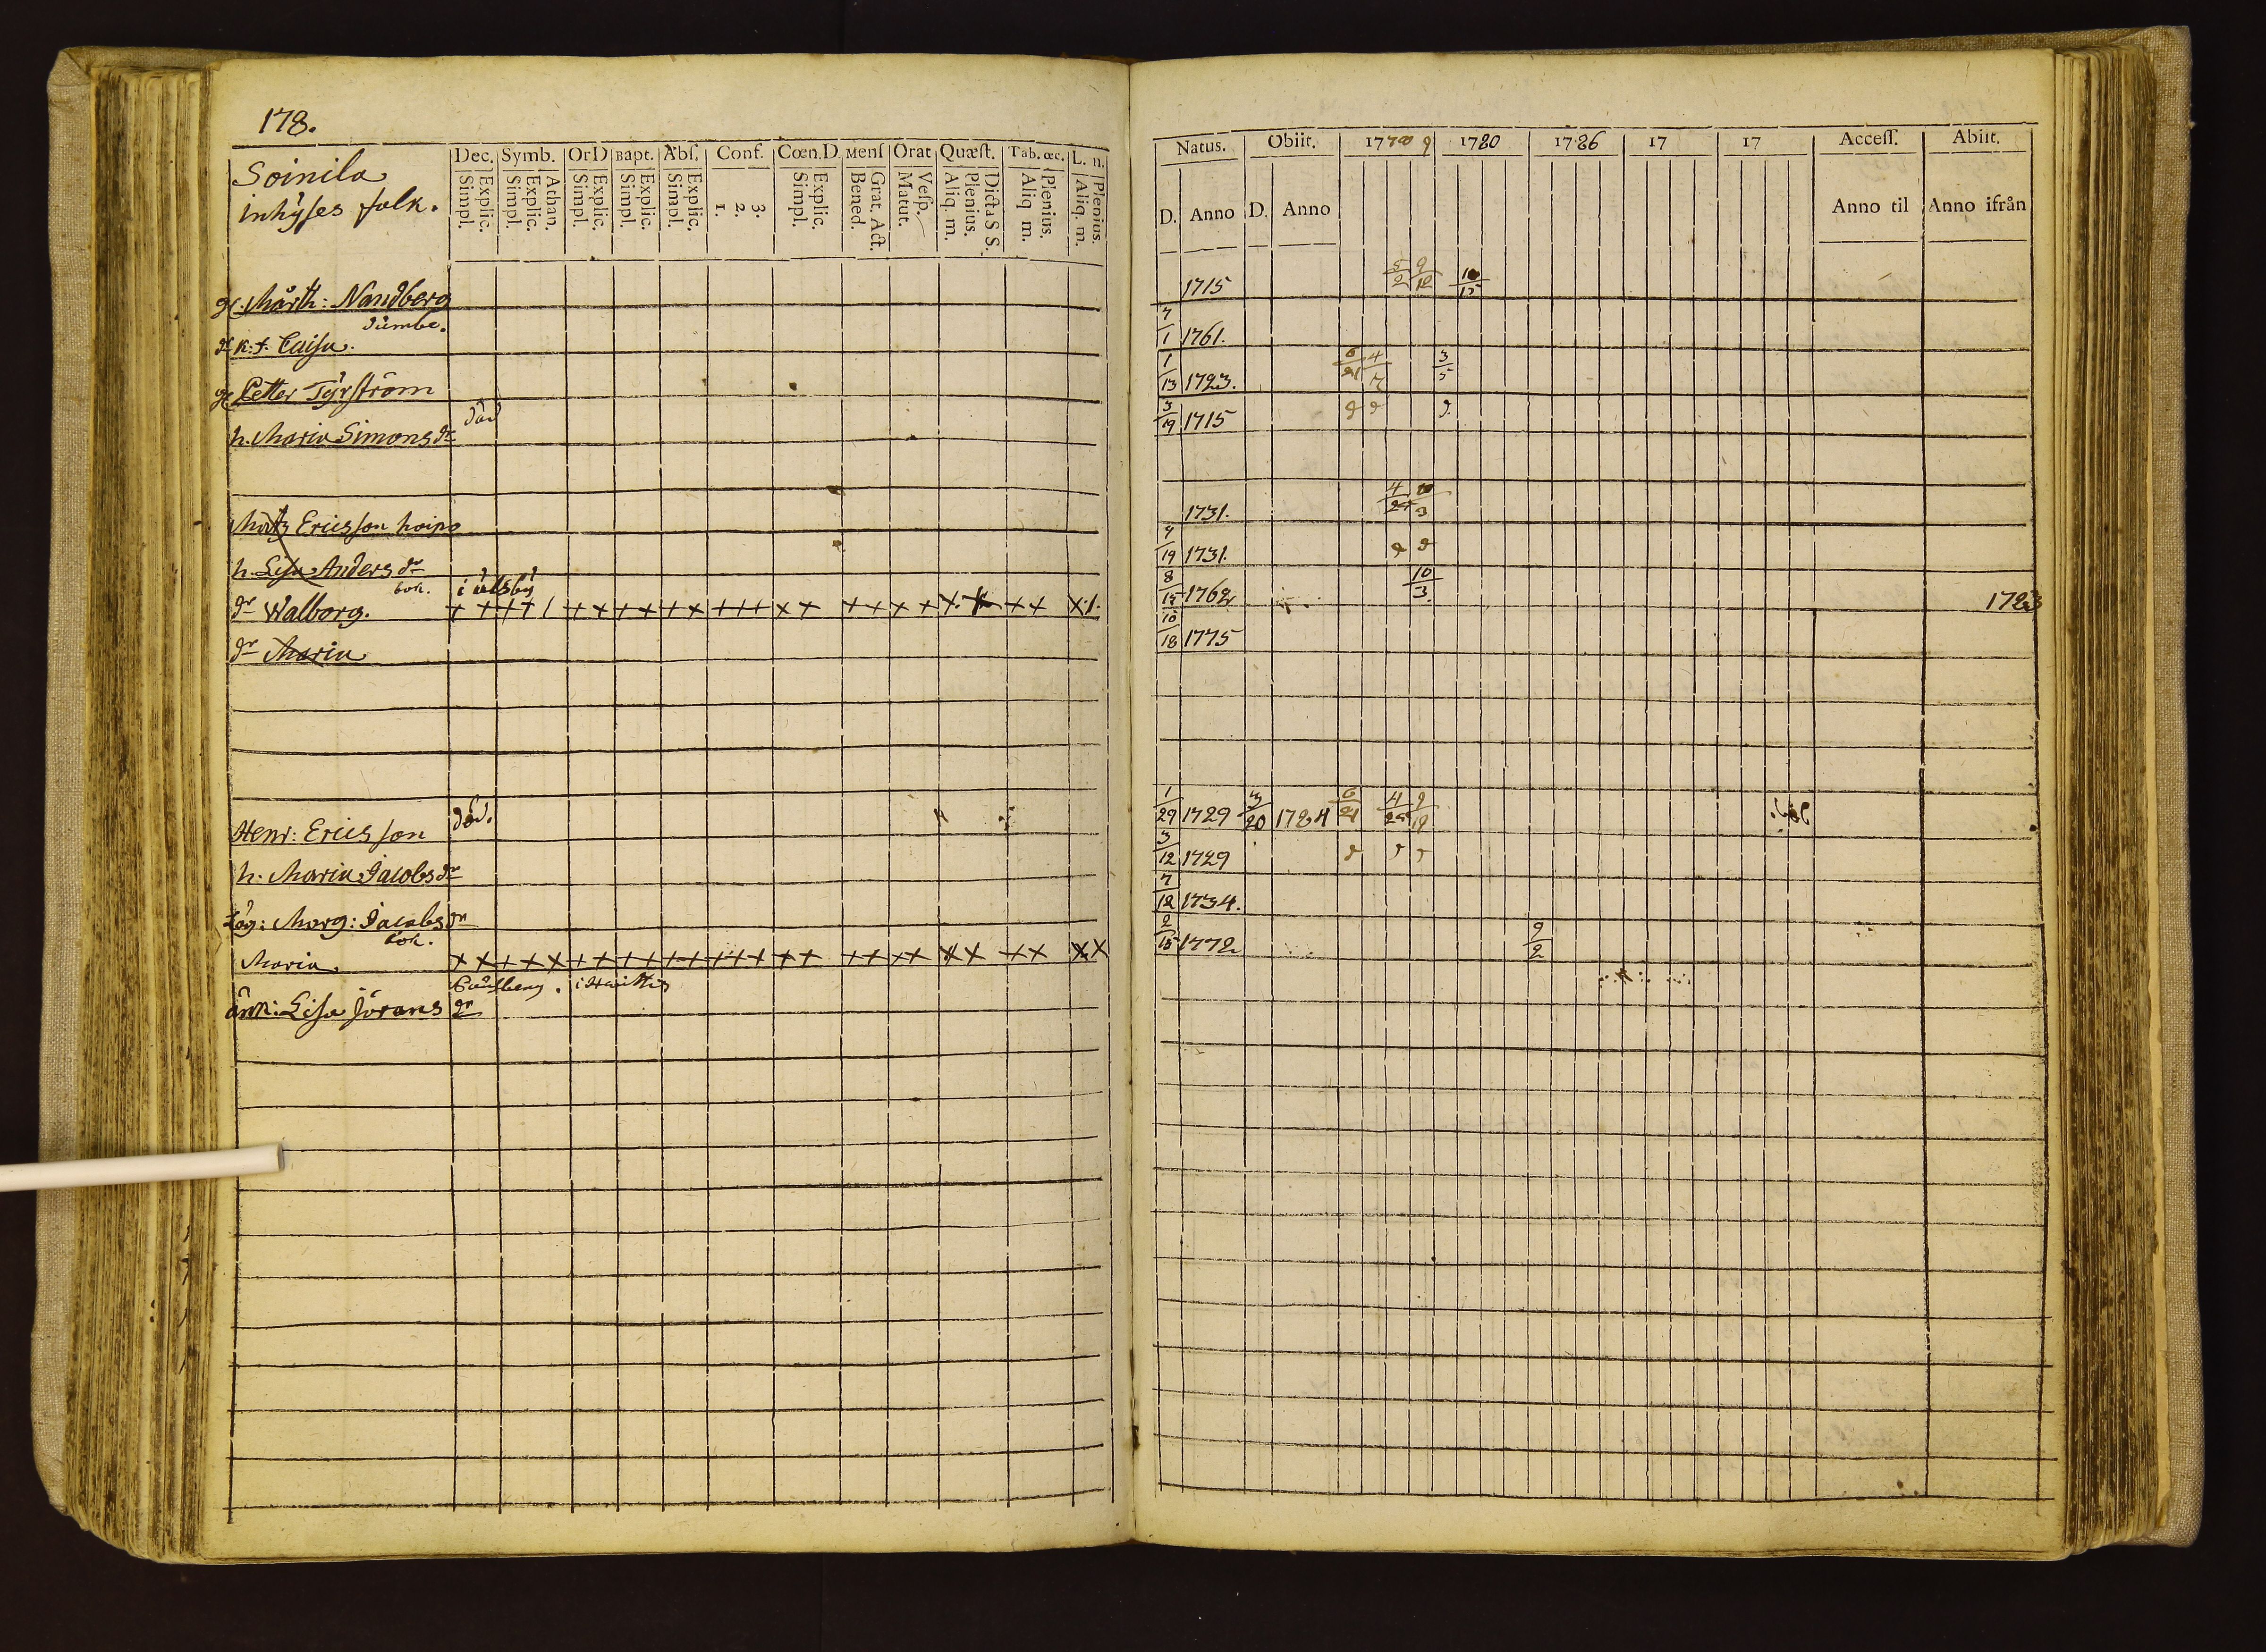 178.
Soinila
inhyses folk.
Dec. Symb. OrD Bapt. Abs. Conf. Cœn.D. Mens Orat Quæst. Tab. œc. L. n.
Simpl. Explic. Simpl. Explic. Athan. Simpl. Explic. Simpl. Explic. Simpl. Explic. 1. 2. 3. Simpl. Explic. Bened. Grat. Act. Matut. Vesp. Aliq. m. Plenius. Dicta S S. Aliq m. Plenius. Aliq. m. Plenius.
Märth: Nandberg
dumbe.
k: f. Caisa.
Petter Tyrström
död
h. Maria Simons dr
Matz Ericsson
h. Lisa Anders dr
bok. i ulsby
dr Walborg. + + + + / + + + + + + + + + x x + + x + x + + x
dr Maria
död.
Henr: Ericsson
h. Maria Jacobs dr
Marg: Jacobs dr
bok.
Maria. x x + x x + + + + + + + + + + + + + x x x x + x x x
änk: Lisa Jörans dr
Natus. Obiit. 17 1780 1786 17 17 Access. Abiit.
D. Anno D. Anno Anno til Anno ifrån
1715
7/1 1761.
1/13 1723. 3/5
3/19 1715
1731.
1731.
8/15 1762 10/3 1783
10/18 1775
1/29 1729 3/20 1784 död.
3/12 1729
7/12 1734.
2/15 1772 9/2